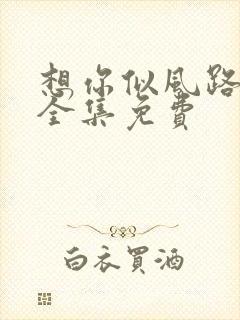 想你似风路
全集免费
白衣買酒